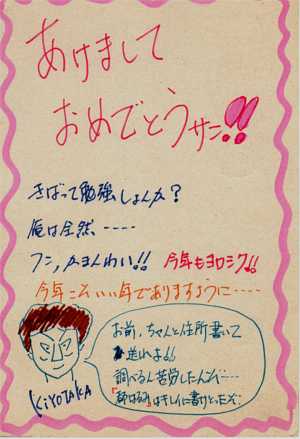 あけまして
おめでとうサン!!
きばって勉強しよんか?
俺は全然----
フン、かまんわい!! 今年もヨロシク!!
今年こそいい年でありますように----
お前、ちゃんと住所書いて
送れよ!!
調べるん苦労したんぞ----
はキレイに書けとったぞ。
KIYOTAKA